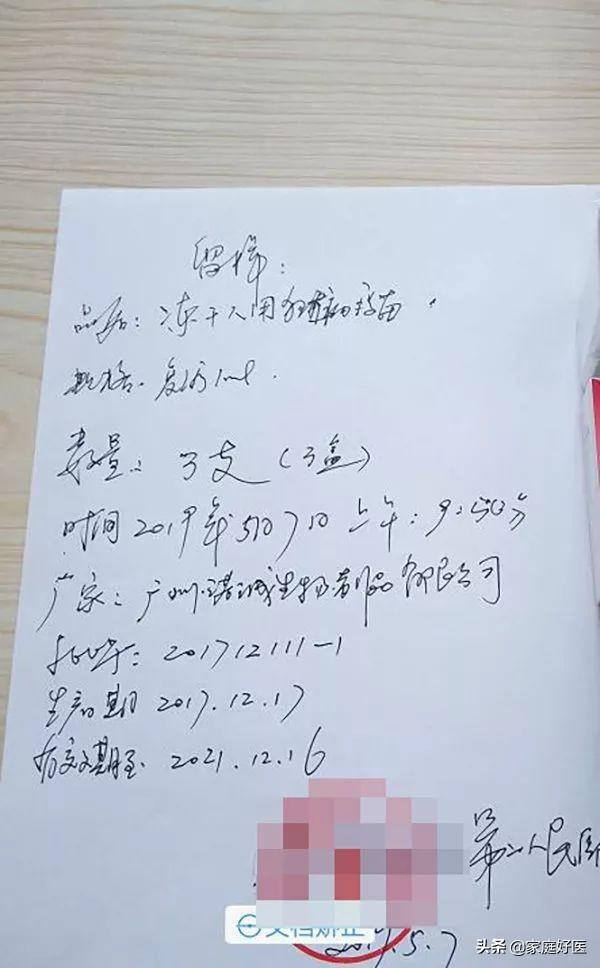 留样:
品名: 冻干人用狂犬病疫苗
规格. 复溶1ml.
数量: 3支 (3盒)
时间 2019年5月7日 上午: 9:50分
厂家: 广州诺诚生物制品有限公司
批号: 201712111-1
生产日期 2017.12.17
有效期至 2021.12.16
第二人民医
文档矫正
2019.5.7
头条 @家庭好医